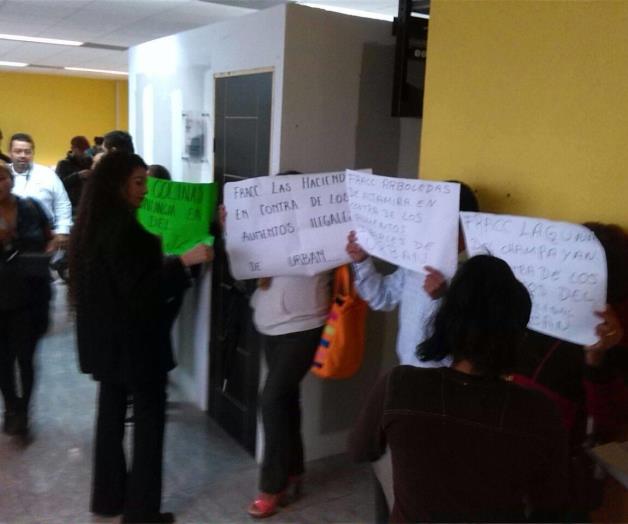 COLINAS
RENUNCIA EN
DEL
FRACC LAS HACIEND
EN CONTRA DE LOS
AUMENTOS ILEGALE
DE URBAN
FRACC ARBOLEDAS
DE ALTAMIRA EN
CONTRA DE LOS
AUMENTOS
DE
URBANI
FRACC LAGUNA
DE CHAMPAYAN
CONTRA DE LOS
OS DEL
BAN